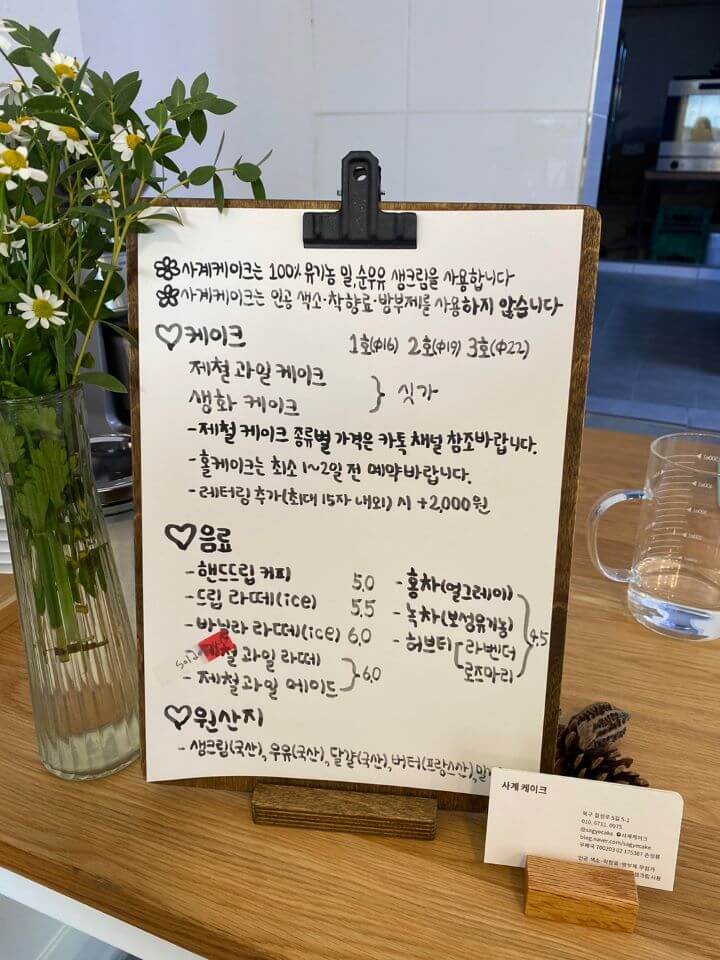 사계케이크는 100% 유기농 밀, 순우유 생크림을 사용합니다
사계케이크는 인공 색소·착향료·방부제를 사용하지 않습니다
♡케이크 1호(Φ16) 2호(Φ19) 3호(Φ22)
제철 과일 케이크
생화 케이크
} 싯가
-제철 케이크 종류별 가격은 카톡 채널 참조바랍니다.
-홀케이크는 최소 1~2일 전 예약바랍니다.
-레터링 추가(최대 15자 내외) 시 +2,000원
♡음료
-핸드드립 커피 5.0
-드립 라떼(ice) 5.5
-바닐라 라떼(ice) 6.0
제철 과일 라떼
-제철과일 에이드
} 6.0
-홍차(얼그레이)
-녹차(보성유기농)
-허브티 [라벤더
로즈마리
} 4.5
♡원산지
-생크림(국산), 우유(국산), 달걀(국산), 버터(프랑스산), 밀
사계 케이크
북구 칠성로 5길 5-1
@sagyecake 사계케이크
blog.naver.com/sagyecake
인공 색소·착향료·방부제 무첨가
생크림 사용